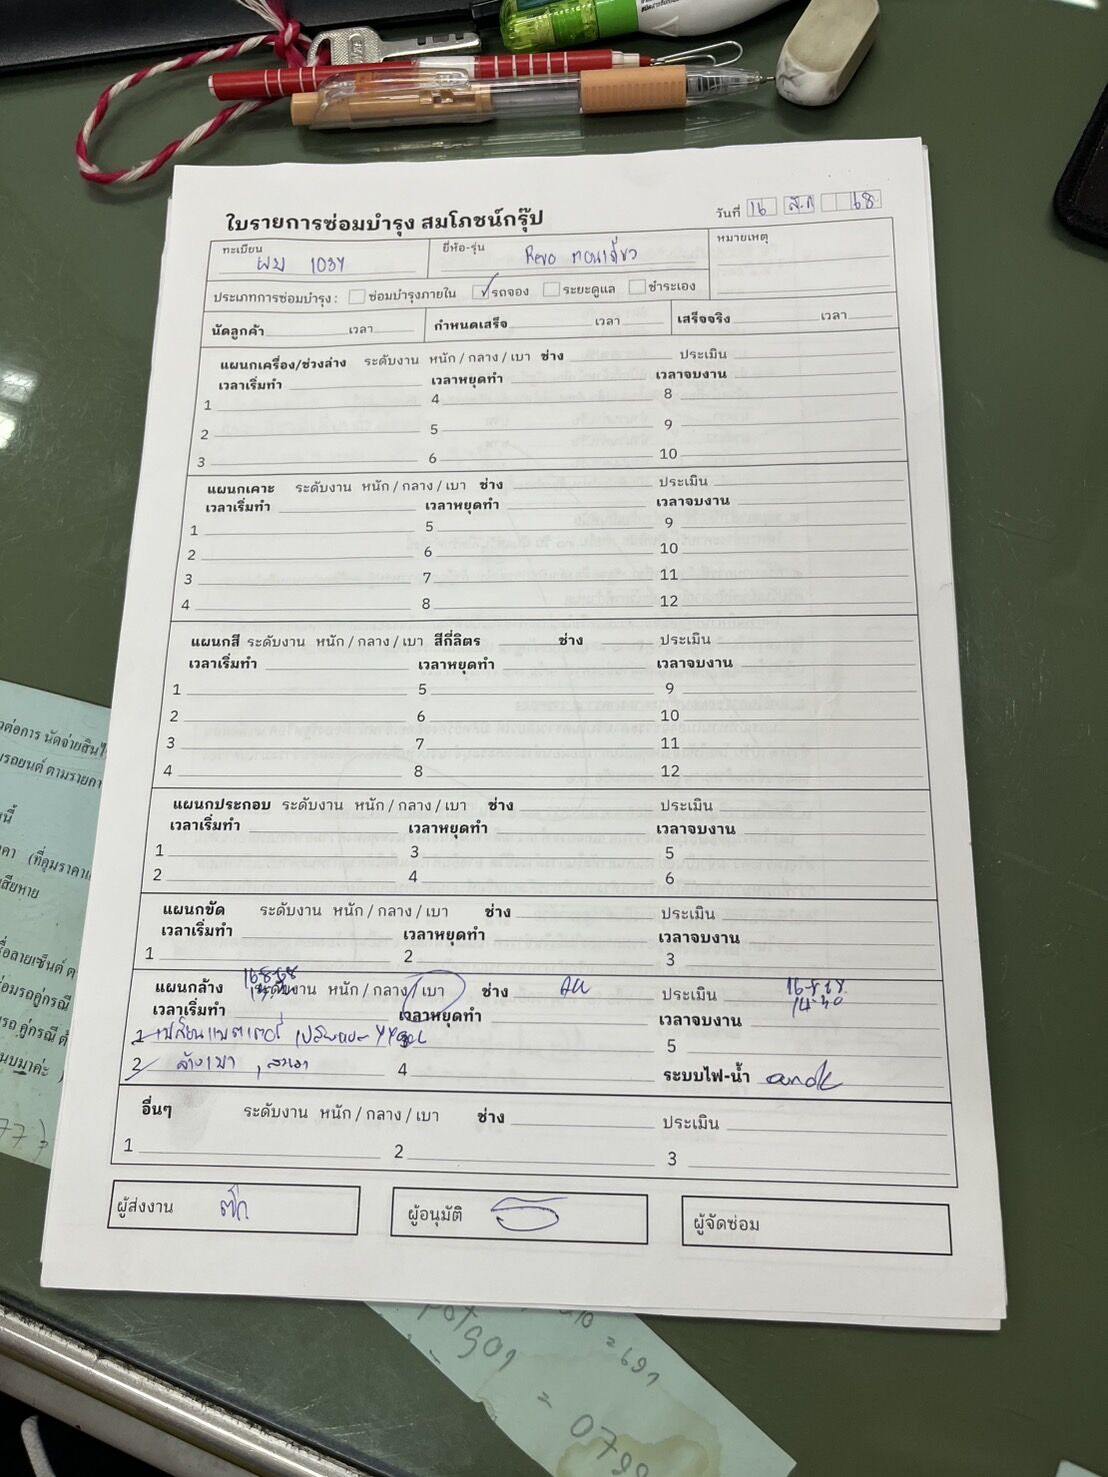 ใบรายการซ่อมบำรุง สมโภชน์กรุ๊ป
วันที่ 16 ส.ค 68
ทะเบียน ผบ 1034
ยี่ห้อ-รุ่น Revo ตอนเดียว
หมายเหตุ
ประเภทการซ่อมบำรุง : ซ่อมบำรุงภายใน รถจอง ระยะดูแล ชำระเอง
นัดลูกค้า เวลา กำหนดเสร็จ เวลา เสร็จจริง เวลา
แผนกเครื่อง/ช่วงล่าง ระดับงาน หนัก / กลาง / เบา ช่าง ประเมิน
เวลาเริ่มทำ เวลาหยุดทำ เวลาจบงาน
1 4 8
2 5 9
3 6 10
แผนกเคาะ ระดับงาน หนัก / กลาง / เบา ช่าง ประเมิน
เวลาเริ่มทำ เวลาหยุดทำ เวลาจบงาน
1 5 9
2 6 10
3 7 11
4 8 12
แผนกสี ระดับงาน หนัก / กลาง / เบา สีกี่ลิตร ช่าง ประเมิน
เวลาเริ่มทำ เวลาหยุดทำ เวลาจบงาน
1 5 9
2 6 10
3 7 11
4 8 12
แผนกประกอบ ระดับงาน หนัก / กลาง / เบา ช่าง ประเมิน
เวลาเริ่มทำ เวลาหยุดทำ เวลาจบงาน
1 3 5
2 4 6
แผนกขัด ระดับงาน หนัก / กลาง / เบา ช่าง ประเมิน
เวลาเริ่มทำ เวลาหยุดทำ เวลาจบงาน
1 2 3
แผนกล้าง ระดับงาน หนัก / กลาง / เบา ช่าง ประเมิน 16-8-68
เวลาเริ่มทำ เวลาหยุดทำ เวลาจบงาน 14.30
1 เปลี่ยนแบตเตอรี่ 5
2 ล้างเบา 4 ระบบไฟ-น้ำ
อื่นๆ ระดับงาน หนัก / กลาง / เบา ช่าง ประเมิน
1 2 3
ผู้ส่งงาน
ผู้อนุมัติ
ผู้จัดซ่อม